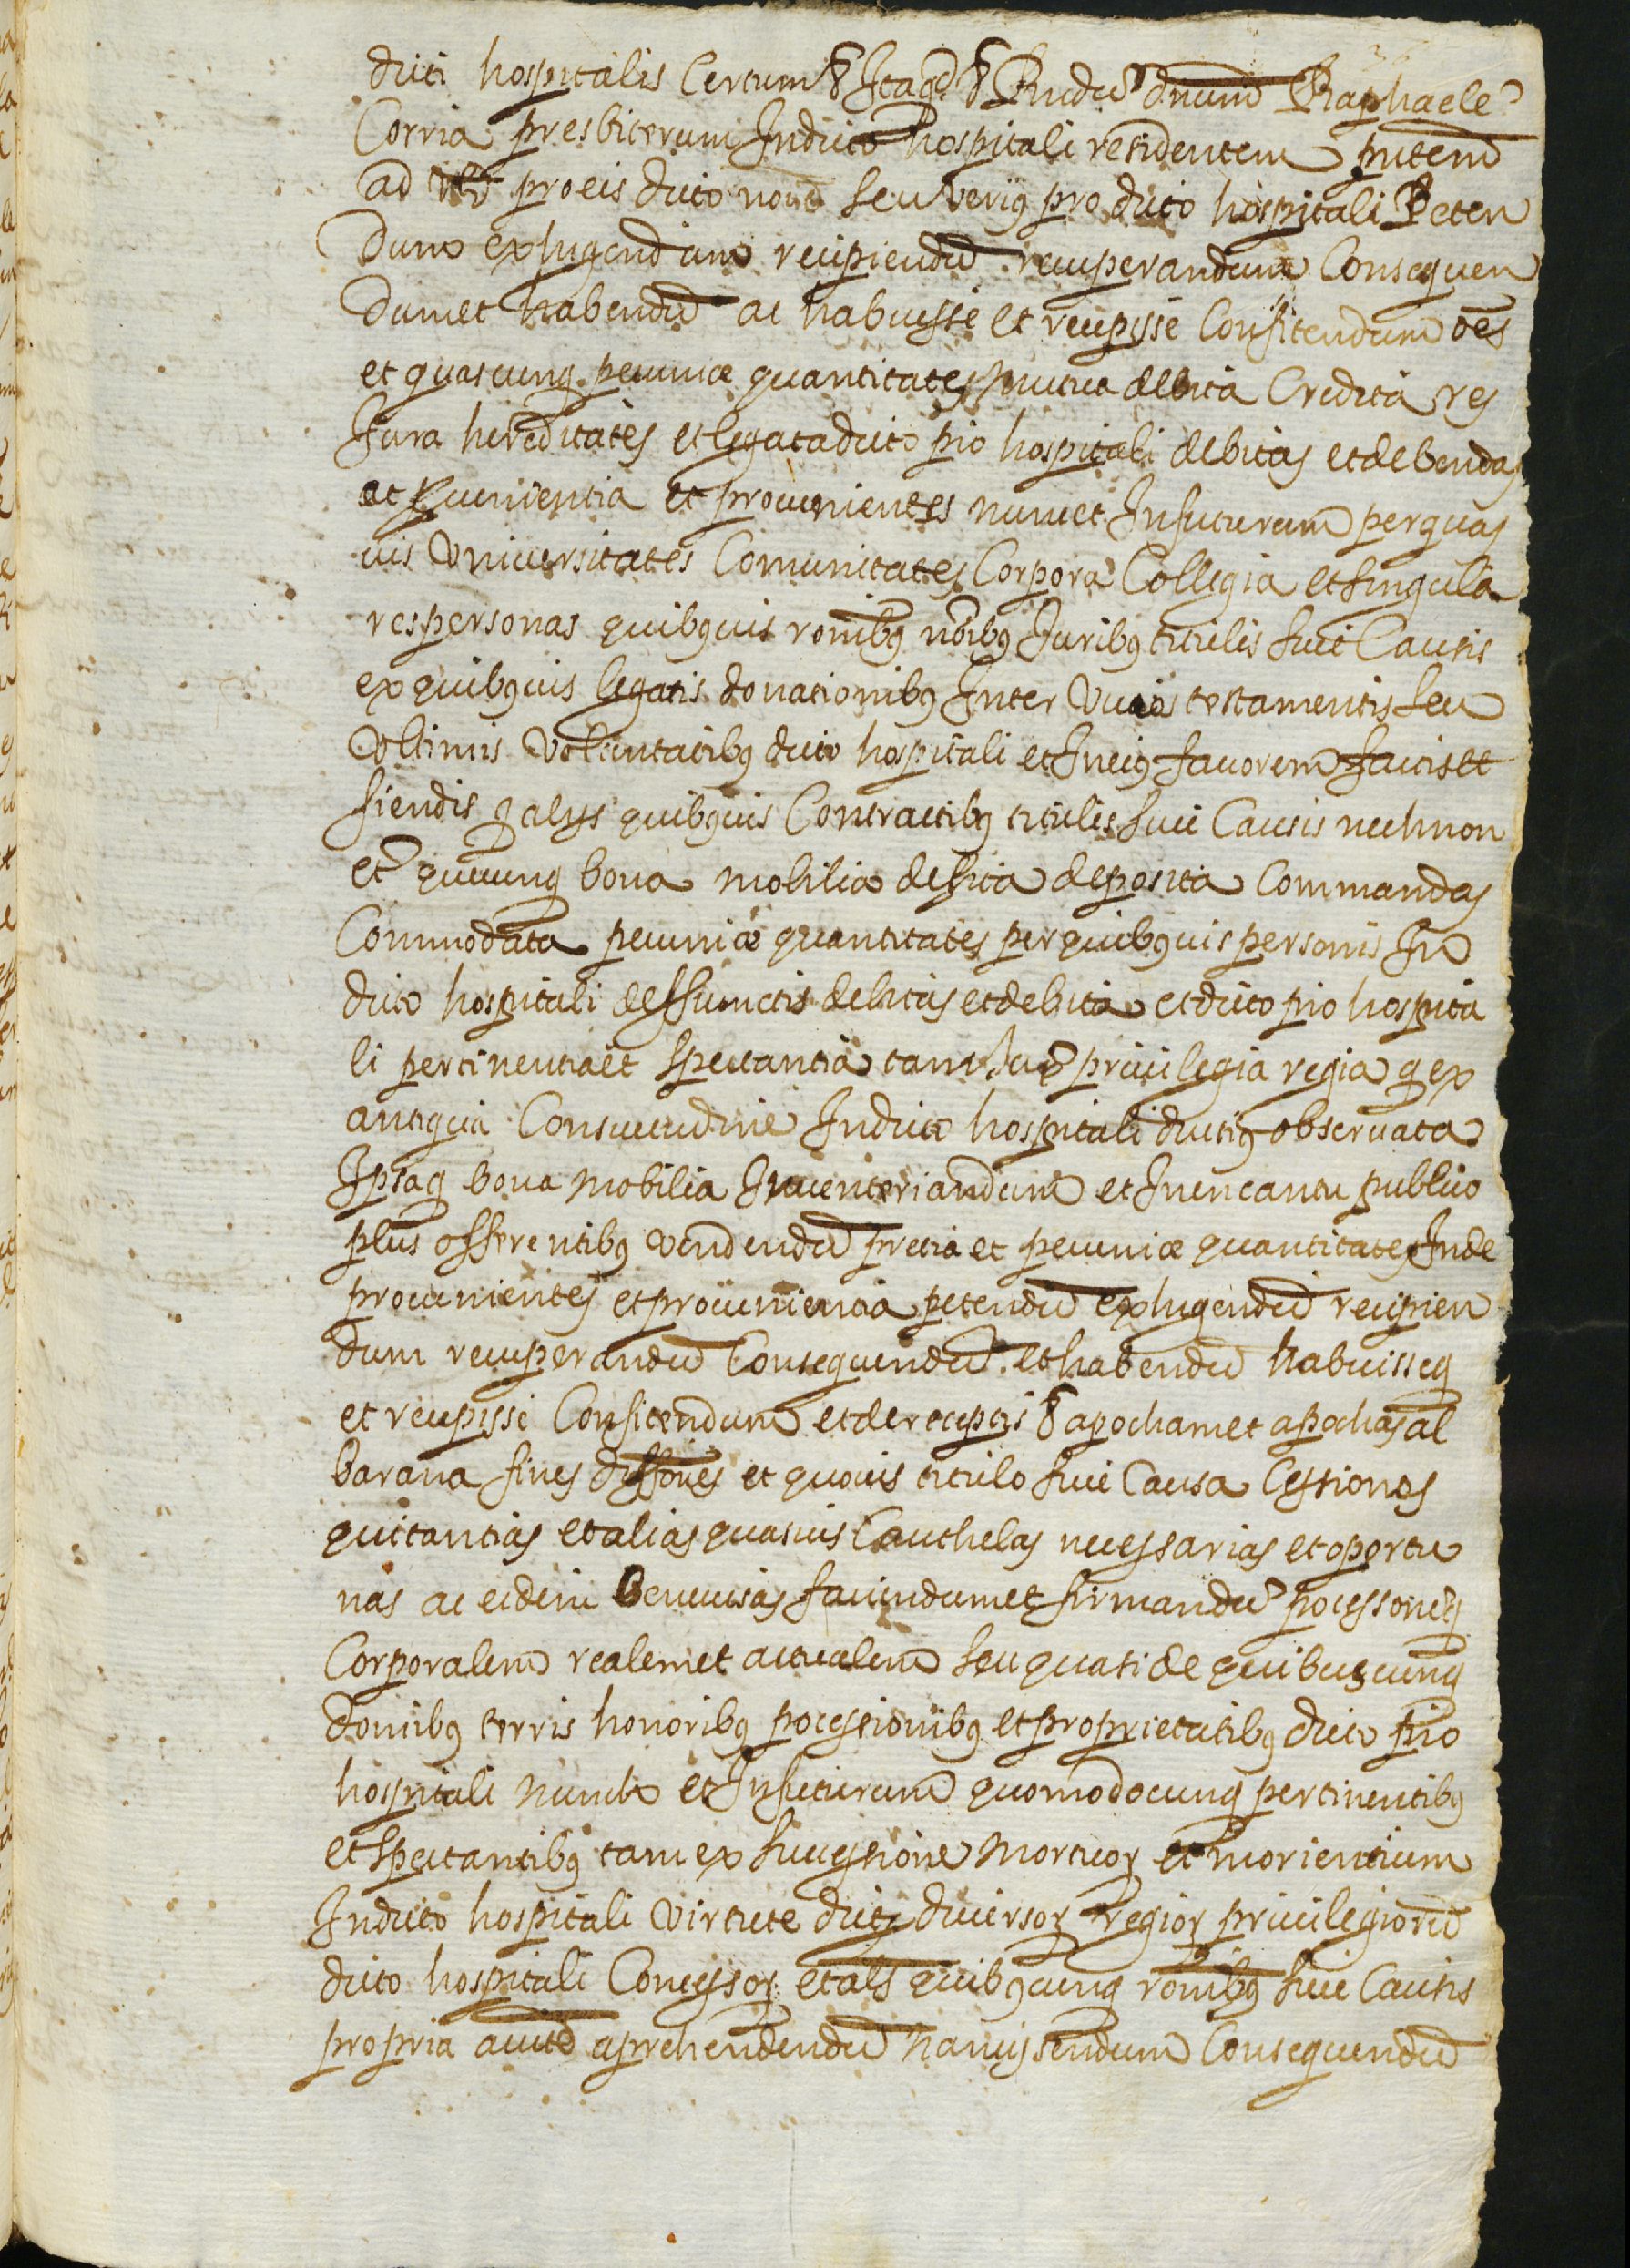 dicti hospitalis Certum & Itaqd & Rndu dnum Raphaele
Corria presbiterum Indicto hospitali residentem pntem
ad pro eis dicto noie seu verius pro dicto hospitali Peten
dum exhigendum recipiendu recuperandum Consequen
dum et habendu ac habuisse et recepisse Confitendum oes
et quascunq pecuniæ quantitates mutua debita Credita res
Jura hereditates et legata dicto pio hospitali debitas et debendas
et pervenientia et provenientes nunc et Infuturum per quas
vis Vniuersitates Comunitates Corpora Collegia et singula
res personas quibusuis ronibus noibus Juribus titulis siue Causis
ex quibusuis legatis donationibus Inter Viuos testamentis seu
Vltimis Voluntatibus dicto hospitali et In eius fauorem factis et
fiendis q alys quibusuis Contractibus titulis siue Causis nechnon
et quecunq bona mobilia debita deposita Commandas
Commodata pecuniæ quantitates per quibusuis personis In
dicto hospitali deffunctis debitas et debita et dicto pio hospita
li pertinentia et spectantia tam Iux priuilegia regia q ex
antiqua Consuetudine Indicto hospitali diutius obseruata
Ipsaq bona mobilia Inuenteriandum et Inencantu publico
plus offerentibus vendendu pretia et pecuniæ quantitates Inde
prouenientes et prouenientia petendu exhigendu recipien
dum recuperandu Consequendu et habendu habuisseq
et recepisse Confitendum et de receptis & apocham et apochas al
barana fines diffones et quouis titulo siue Causa Cessiones
quitantias et alias quasuis Cauthelas necessarias et oportu
nas ac eidem benevisas faciendum et firmandu pocessoneq
Corporalem realem et actualem seu quasi de quibuscunq
domibus terris honoribus pocessionibus et proprietatibus dicto pio
hospitali nunch et Infuturum quomodocunq pertinentibus
et spectantibus tam ex successione mortuor et morientium
Indicto hospitali virtute dictor diuersor regior priuilegioru
dicto hospitali Concessor et als quibuscunq ronibus siue Causis
propria auctte aprehendendu nanissendum Consequendu